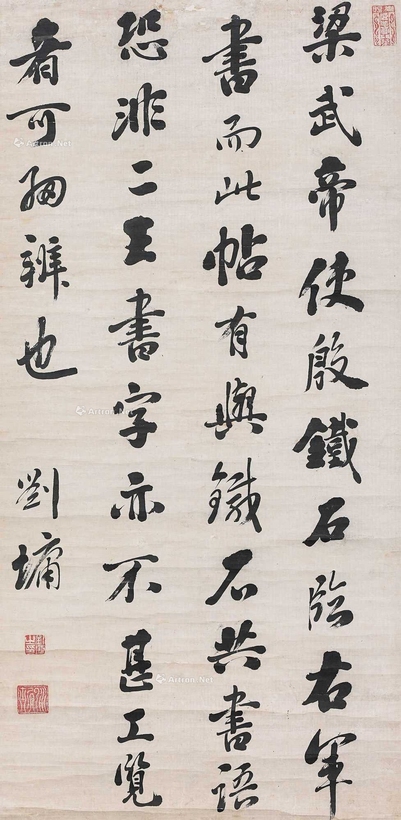 梁武帝使殷鐵石臨右軍
書而此帖有與鐵石共書語
恐非二王書字亦不甚工覽
者可細辨也
劉墉
Artron.Net
Artron.Net
Artron.Net